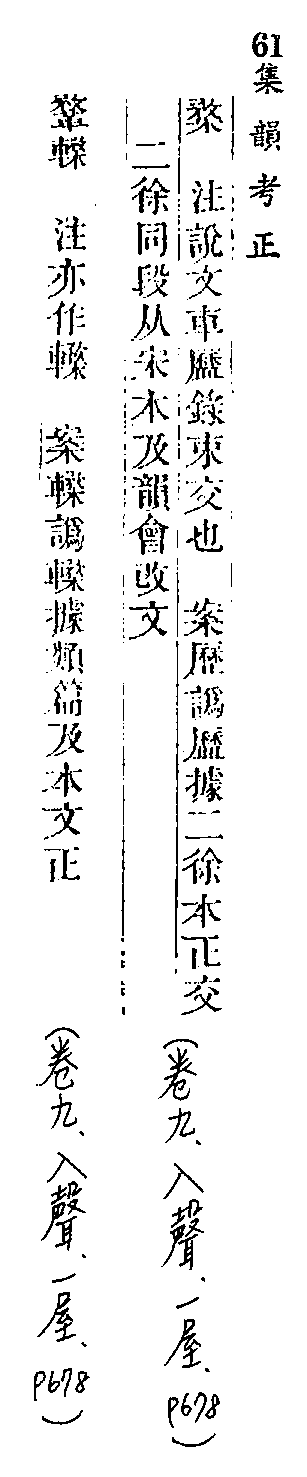 61集韻考正
楘 注說文車歷錄束交也 案歷譌歴據二徐本正交
二徐同段从宋本及韻會改文
鞪䡜 注亦作䡜 案䡜譌䡜據類篇及本文正
(卷九、入聲、一屋、P678)
(卷九、入聲、一屋、P678)